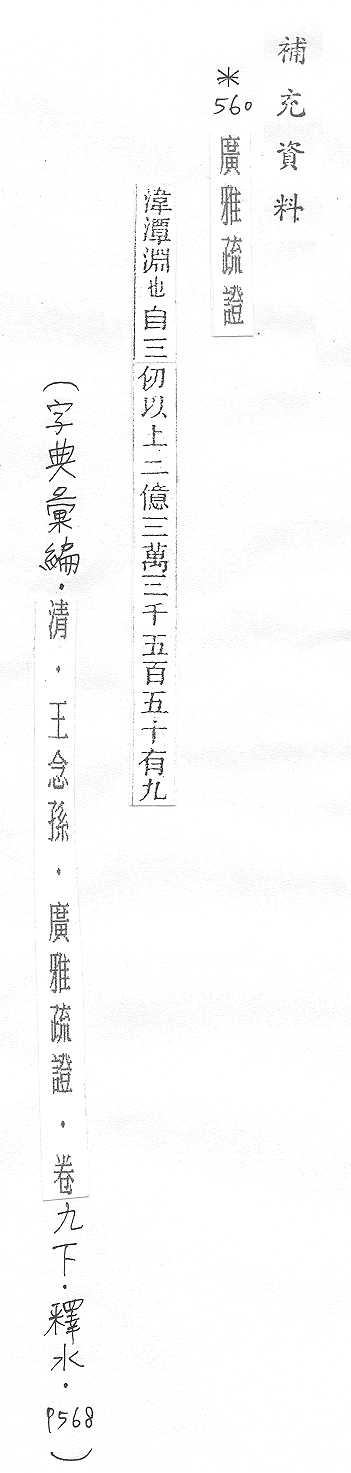 補充資料
*560 廣雅疏證
湋潭淵也自三仞以上二億三萬三千五百五十有九
(字典彙編.清.王念孫.廣雅疏證.卷九下.釋水.P568)